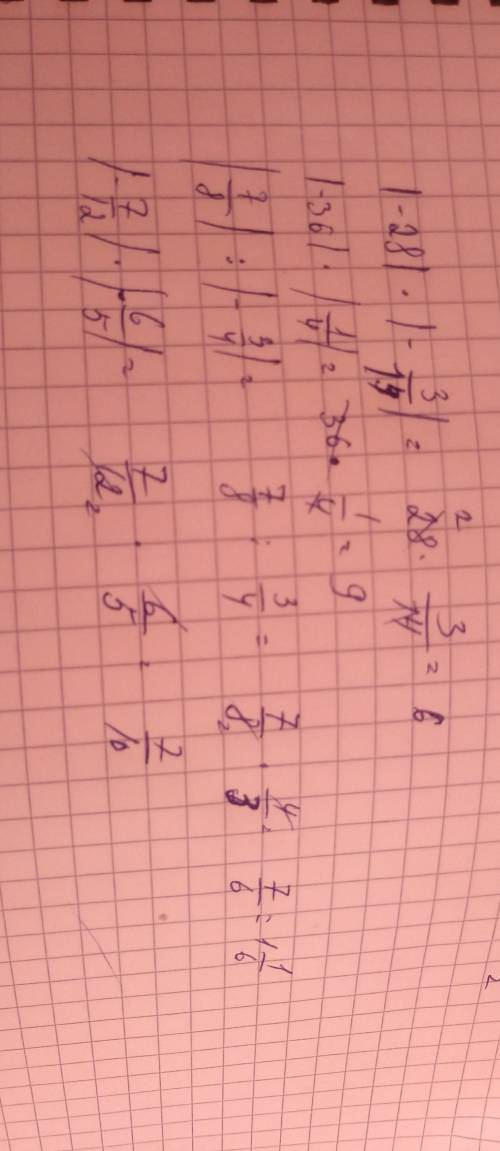 |-28| · |-3/14| = 28 · 3/14 = 6
2
|-36| · |1/4| = 36 · 1/4 = 9
|7/8| : |-3/4| = 7/8 : 3/4 = 7/8 · 4/3 = 7/6 = 1 1/6
2
|-7/12| · |6/5| = 7/12 · 6/5 = 7/10
2
2